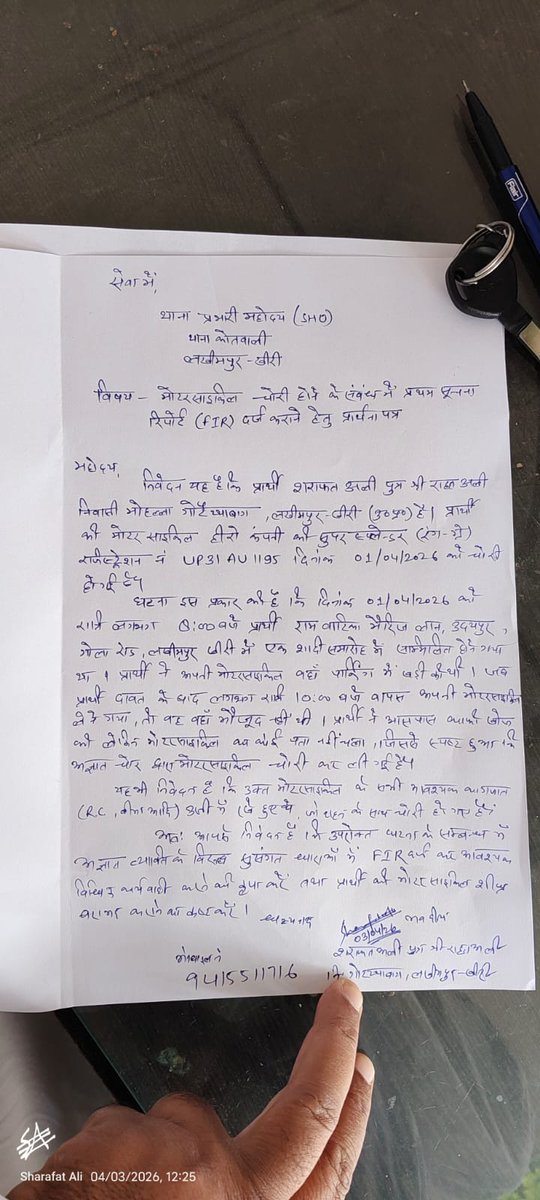 सेवा में,
थाना प्रभारी महोदय (SHO)
थाना कोतवाली
लखीमपुर-खीरी
विषय - मोटरसाइकिल चोरी होने के संबंध में प्रथम सूचना
रिपोर्ट (FIR) दर्ज कराने हेतु प्रार्थना पत्र
महोदय,
निवेदन यह है कि प्रार्थी शराफत अली पुत्र श्री अली
निवासी मोहल्ला, लखीमपुर-खीरी (उ०प्र०) है। प्रार्थी
की मोटर साइकिल हीरो कंपनी की सुपर स्प्लेंडर (रंग-ग्रे)
रजिस्ट्रेशन नं UP31AU1195 दिनांक 01/04/2026 को चोरी
हो गई है।
घटना इस प्रकार की है कि दिनांक 01/04/2026 को
रात्रि लगभग 8:00 बजे प्रार्थी राम वाटिका मैरिज लान, उदयपुर,
गोला रोड, लखीमपुर खीरी में एक शादी समारोह में सम्मिलित होने गया
था। प्रार्थी ने अपनी मोटरसाइकिल वहाँ पार्किंग में खड़ी की थी। जब
प्रार्थी दावत के बाद लगभग रात्रि 10:00 बजे वापस अपनी मोटरसाइकिल
लेने गया, तो वह वहाँ मौजूद नहीं थी। प्रार्थी ने आसपास काफी खोज
की लेकिन मोटरसाइकिल का कोई पता नहीं चला, जिससे स्पष्ट हुआ कि
अज्ञात चोर द्वारा मोटरसाइकिल चोरी कर ली गई है।
यह भी निवेदन है कि उक्त मोटरसाइकिल के सभी आवश्यक कागजात
(RC, बीमा आदि) उसी में रखे हुए थे, जो वाहन के साथ चोरी हो गए हैं।
अतः आपसे निवेदन है कि उपरोक्त घटना के सम्बन्ध में
अज्ञात व्यक्ति के विरुद्ध सुसंगत धाराओं में FIR दर्ज कर आवश्यक
विधिक कार्यवाही करने की कृपा करें तथा प्रार्थी की मोटरसाइकिल शीघ्र
बरामद कराने का कष्ट करें।
धन्यवाद
भवदीय
03/04/26
शराफत अली पुत्र श्री अली
नि०, लखीमपुर-खीरी
मोबाइल नं
9415511716
Sharafat Ali 04/03/2026, 12:25